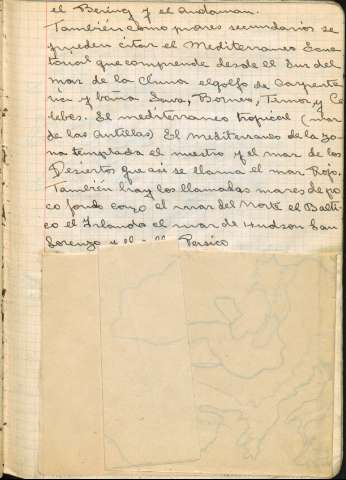 el Bering y el Andaman.
También como mares secundarios se
pueden citar el Mediterraneo Ecua
torial que comprende desde el Sur del
mar de la China el golfo de Carpenta
ria y baña Java, Borneo, Timor y Ce
lebes. El mediterraneo tropical (mar
de las Antillas) El mediterraneo de la zo
na templada el nuestro y el mar de los
Desiertos que asi se llama el mar Rojo.
También hay los llamadas mares de po
co fondo como el mar del Norte el Balti
co el Irlanda el mar de Hudson San
Lorenzo y el Persico